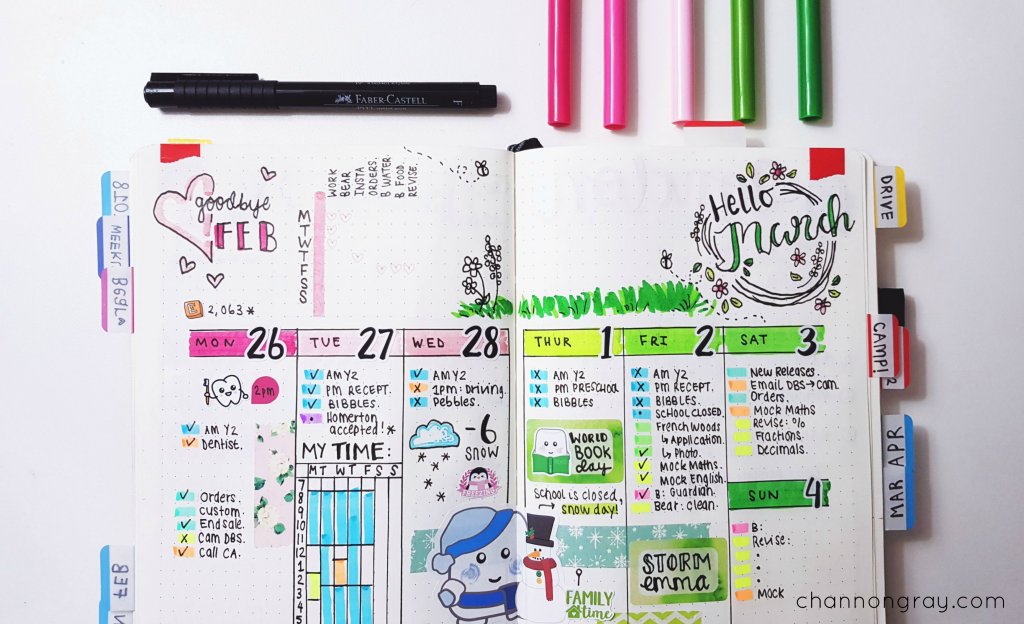 FABER-CASTELL
goodbye
FEB
WORK
BEAR
INSTA
ORDERS.
B WATER
B FOOD.
REVISE.
M
T
W
T
F
S
S
E 2,063*
Hello
March
DRIVE
CAMP!
MAR APR
FEB
MON 26
2pm
AM Y2
Dentist.
Orders.
Custom.
End sale.
Cam DBS.
Call CA.
TUE 27
AM Y2
PM RECEPT.
BIBBLES.
Homerton
accepted!*
MY TIME:
M T W T F S S
7
8
9
10
11
12
1
2
3
4
5
WED 28
AM Y2
1pm: Driving.
Pebbles.
-6
SNOW
FREEZING
THUR 1
AM Y2
PM PRESCHOOL
BIBBLES
WORLD
BOOK
day
School is closed,
→ snow day!
FAMILY
time
FRI 2
AM Y2
PM RECEPT.
BIBBLES.
SCHOOL CLOSED.
French Woods
↳ Application.
↳ Photo.
Mock Maths.
Mock English.
B: Guardian.
Bear: clean.
STORM
emma
SAT 3
New Releases.
Email DBS→cam
Orders.
Mock Maths
Revise: %
Fractions
Decimals.
SUN 4
B:
Revise:
Mock
channongray.com